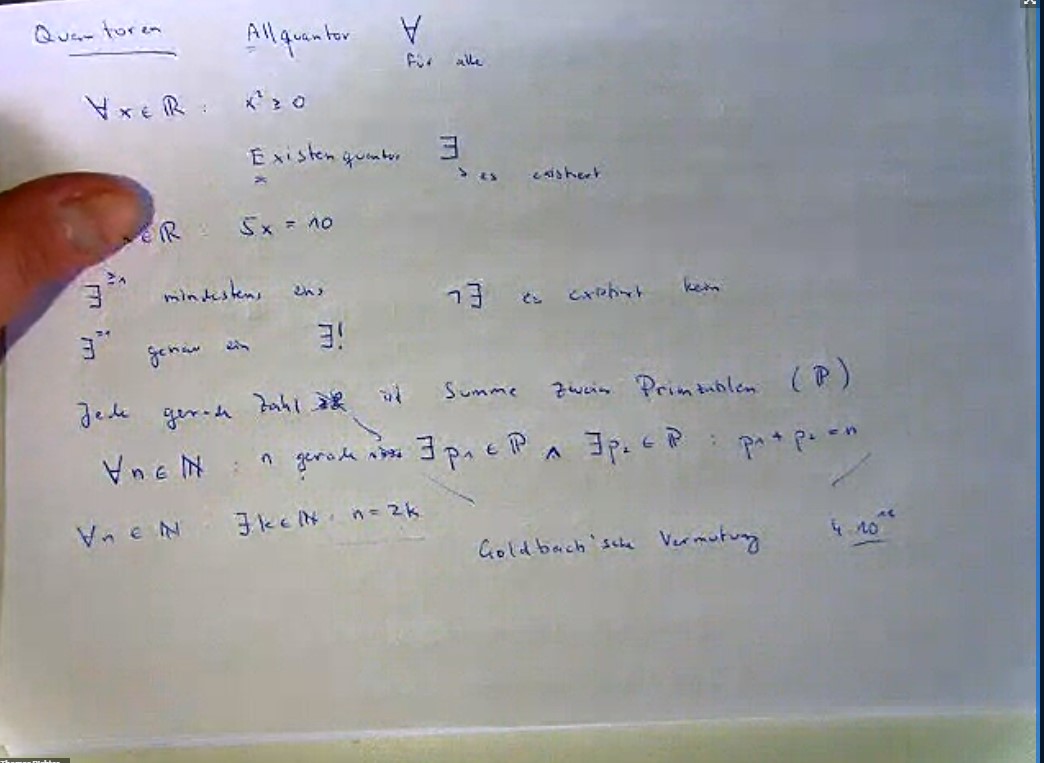 Quantoren Allquantor ∀
für alle
∀ x ∈ ℝ : x² ≥ 0
Existenquantor ∃
> es existiert
∈ ℝ : 5x = 10
∃^≥1 mindestens eins ¬∃ es existiert kein
∃^=1 genau ein ∃!
Jede gerade Zahl ist Summe zweier Primzahlen (ℙ)
∀ n ∈ ℕ : n gerade ∃ p₁ ∈ ℙ ∧ ∃ p₂ ∈ ℙ : p₁ + p₂ = n
∀ n ∈ ℕ ∃ k ∈ ℕ : n = 2k
Goldbach'sche Vermutung 4·10